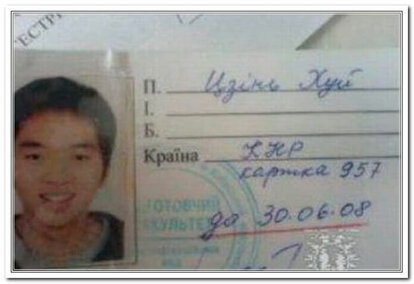 ЕСТР
П. Цзінь Хуй
І.
Б.
Країна КНР
картка 957
ГОТОВЧИЙ
до 30.06.08